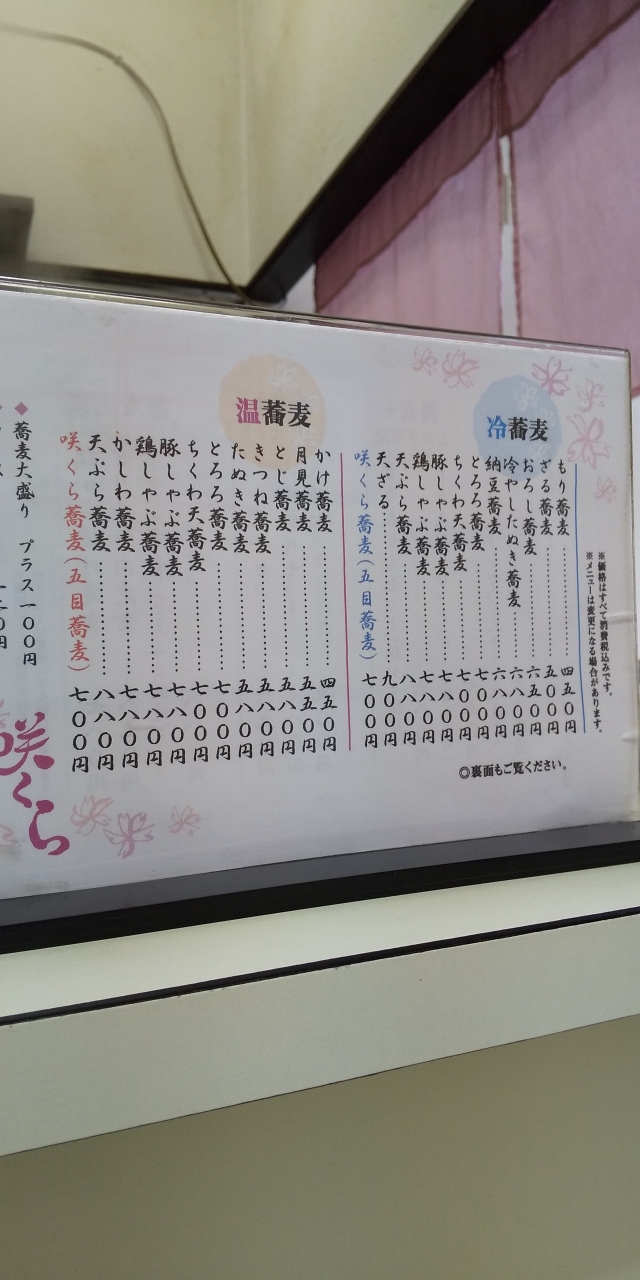 ※価格はすべて消費税込みです。
※メニューは変更になる場合があります。
冷蕎麦
もり蕎麦…………四五〇円
ざる蕎麦…………五〇〇円
おろし蕎麦…………六五〇円
冷やしたぬき蕎麦……六八〇円
納豆蕎麦…………六八〇円
とろろ蕎麦…………七〇〇円
ちくわ天蕎麦…………七〇〇円
豚しゃぶ蕎麦…………七八〇円
鶏しゃぶ蕎麦…………七八〇円
天ぷら蕎麦…………八八〇円
天ざる…………九〇〇円
咲くら蕎麦(五目蕎麦)七〇〇円
◎裏面もご覧ください。
温蕎麦
かけ蕎麦…………四五〇円
月見蕎麦…………五五〇円
とじ蕎麦…………五八〇円
きつね蕎麦…………五八〇円
たぬき蕎麦…………五八〇円
とろろ蕎麦…………七〇〇円
ちくわ天蕎麦…………七〇〇円
豚しゃぶ蕎麦…………七八〇円
鶏しゃぶ蕎麦…………七八〇円
かしわ蕎麦…………七八〇円
天ぷら蕎麦…………八八〇円
咲くら蕎麦(五目蕎麦)七〇〇円
◆蕎麦大盛り プラス一〇〇円
咲くら